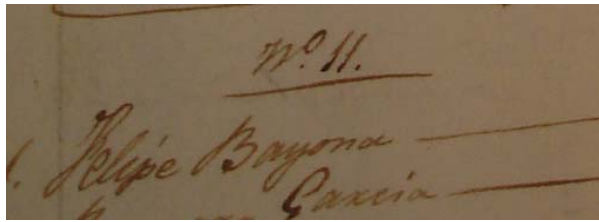 Nº 11.
Felipe Bayona
Garcia